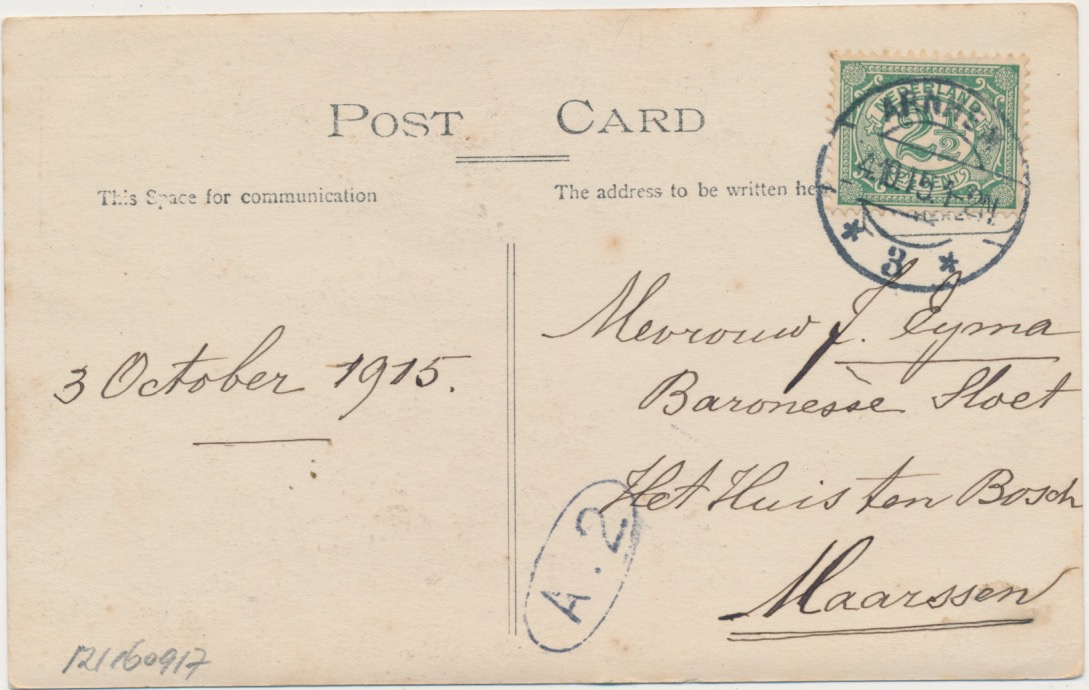 POST CARD
This Space for communication
The address to be written he
NEDERLAND
2½
CENT
ARNHEM
4.10.15.
* 3 *
3 October 1915.
Mevrouw J. Eyma
Baronesse Sloet
Het Huis ten Bosch
Maarssen
A.2
12/160917